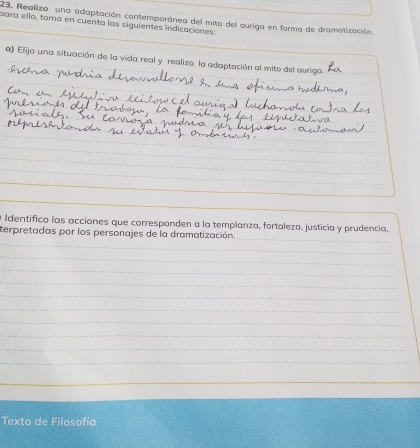 23. Realizo una adaptación contemporánea del mito del auriga en forma de dramatización.
para ello, toma en cuenta las siguientes indicaciones:
a) Elijo una situación de la vida real y realizo la adaptación al mito del auriga. La
escena podría desarrollarse en una oficina moderna,
con un ejecutivo exitoso (el auriga) luchando contra las
presiones del trabajo, la familia y las expectativa
sociales. Su carroza podría ser lujoso automovil
representando su estatus y ambiciones.
Identifico las acciones que corresponden a la templanza, fortaleza, justicia y prudencia,
terpretadas por los personajes de la dramatización.
Texto de Filosofía